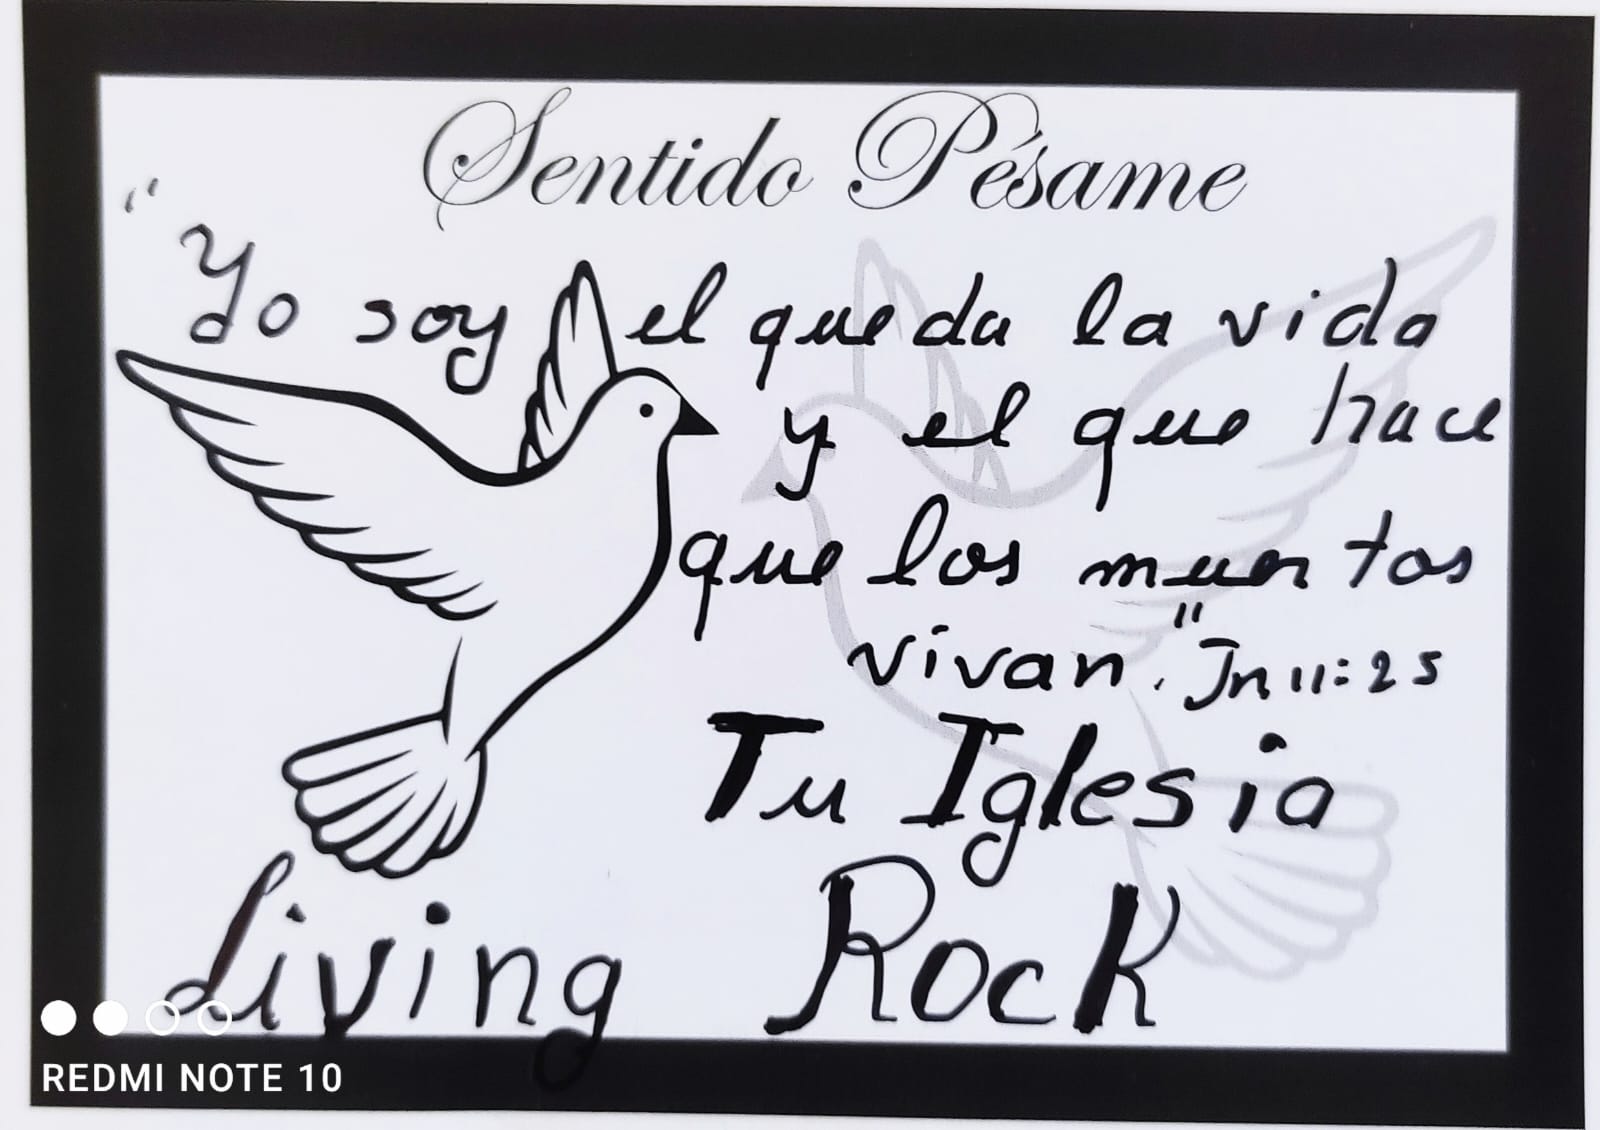 Sentido Pésame
"Yo soy el que da la vida
y el que hace
que los muertos
vivan." Jn 11:25
Tu Iglesia
Living Rock
REDMI NOTE 10